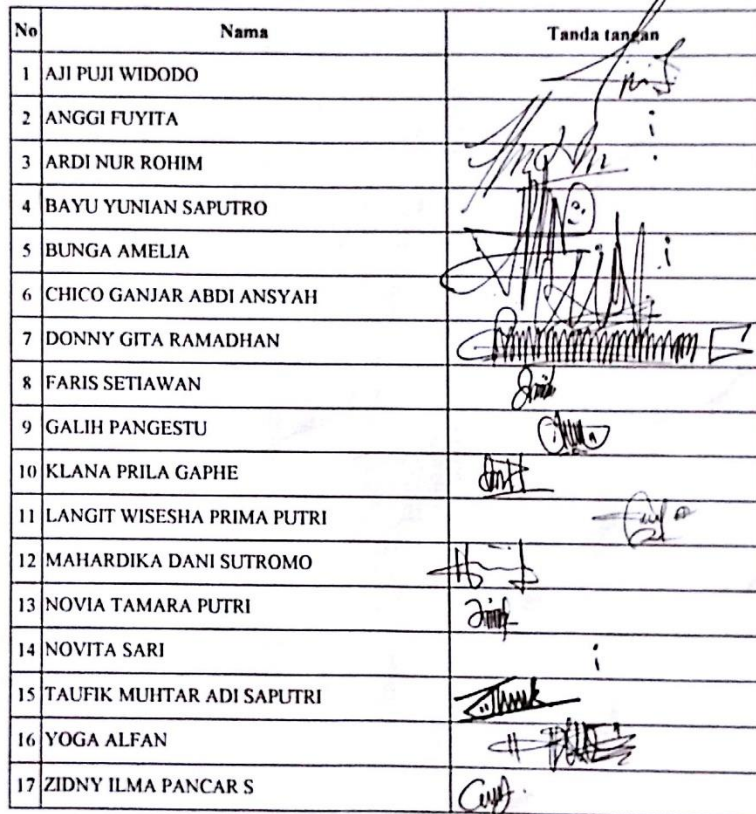 No Nama Tanda tangan
1 AJI PUJI WIDODO
2 ANGGI FUYITA i
3 ARDI NUR ROHIM
4 BAYU YUNIAN SAPUTRO
5 BUNGA AMELIA i
6 CHICO GANJAR ABDI ANSYAH
7 DONNY GITA RAMADHAN
8 FARIS SETIAWAN
9 GALIH PANGESTU
10 KLANA PRILA GAPHE
11 LANGIT WISESHA PRIMA PUTRI
12 MAHARDIKA DANI SUTROMO
13 NOVIA TAMARA PUTRI
14 NOVITA SARI i
15 TAUFIK MUHTAR ADI SAPUTRI
16 YOGA ALFAN
17 ZIDNY ILMA PANCAR S